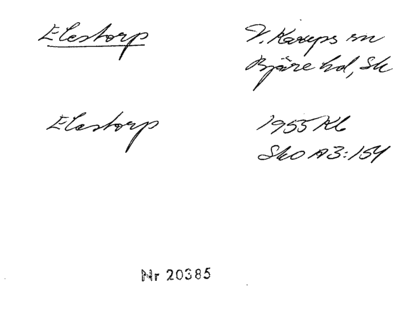 Elestorp
V. Karups sn
Bjäre hd, Sk
Elestorp
1955 Kb
Sko A3:154
Nr 20385